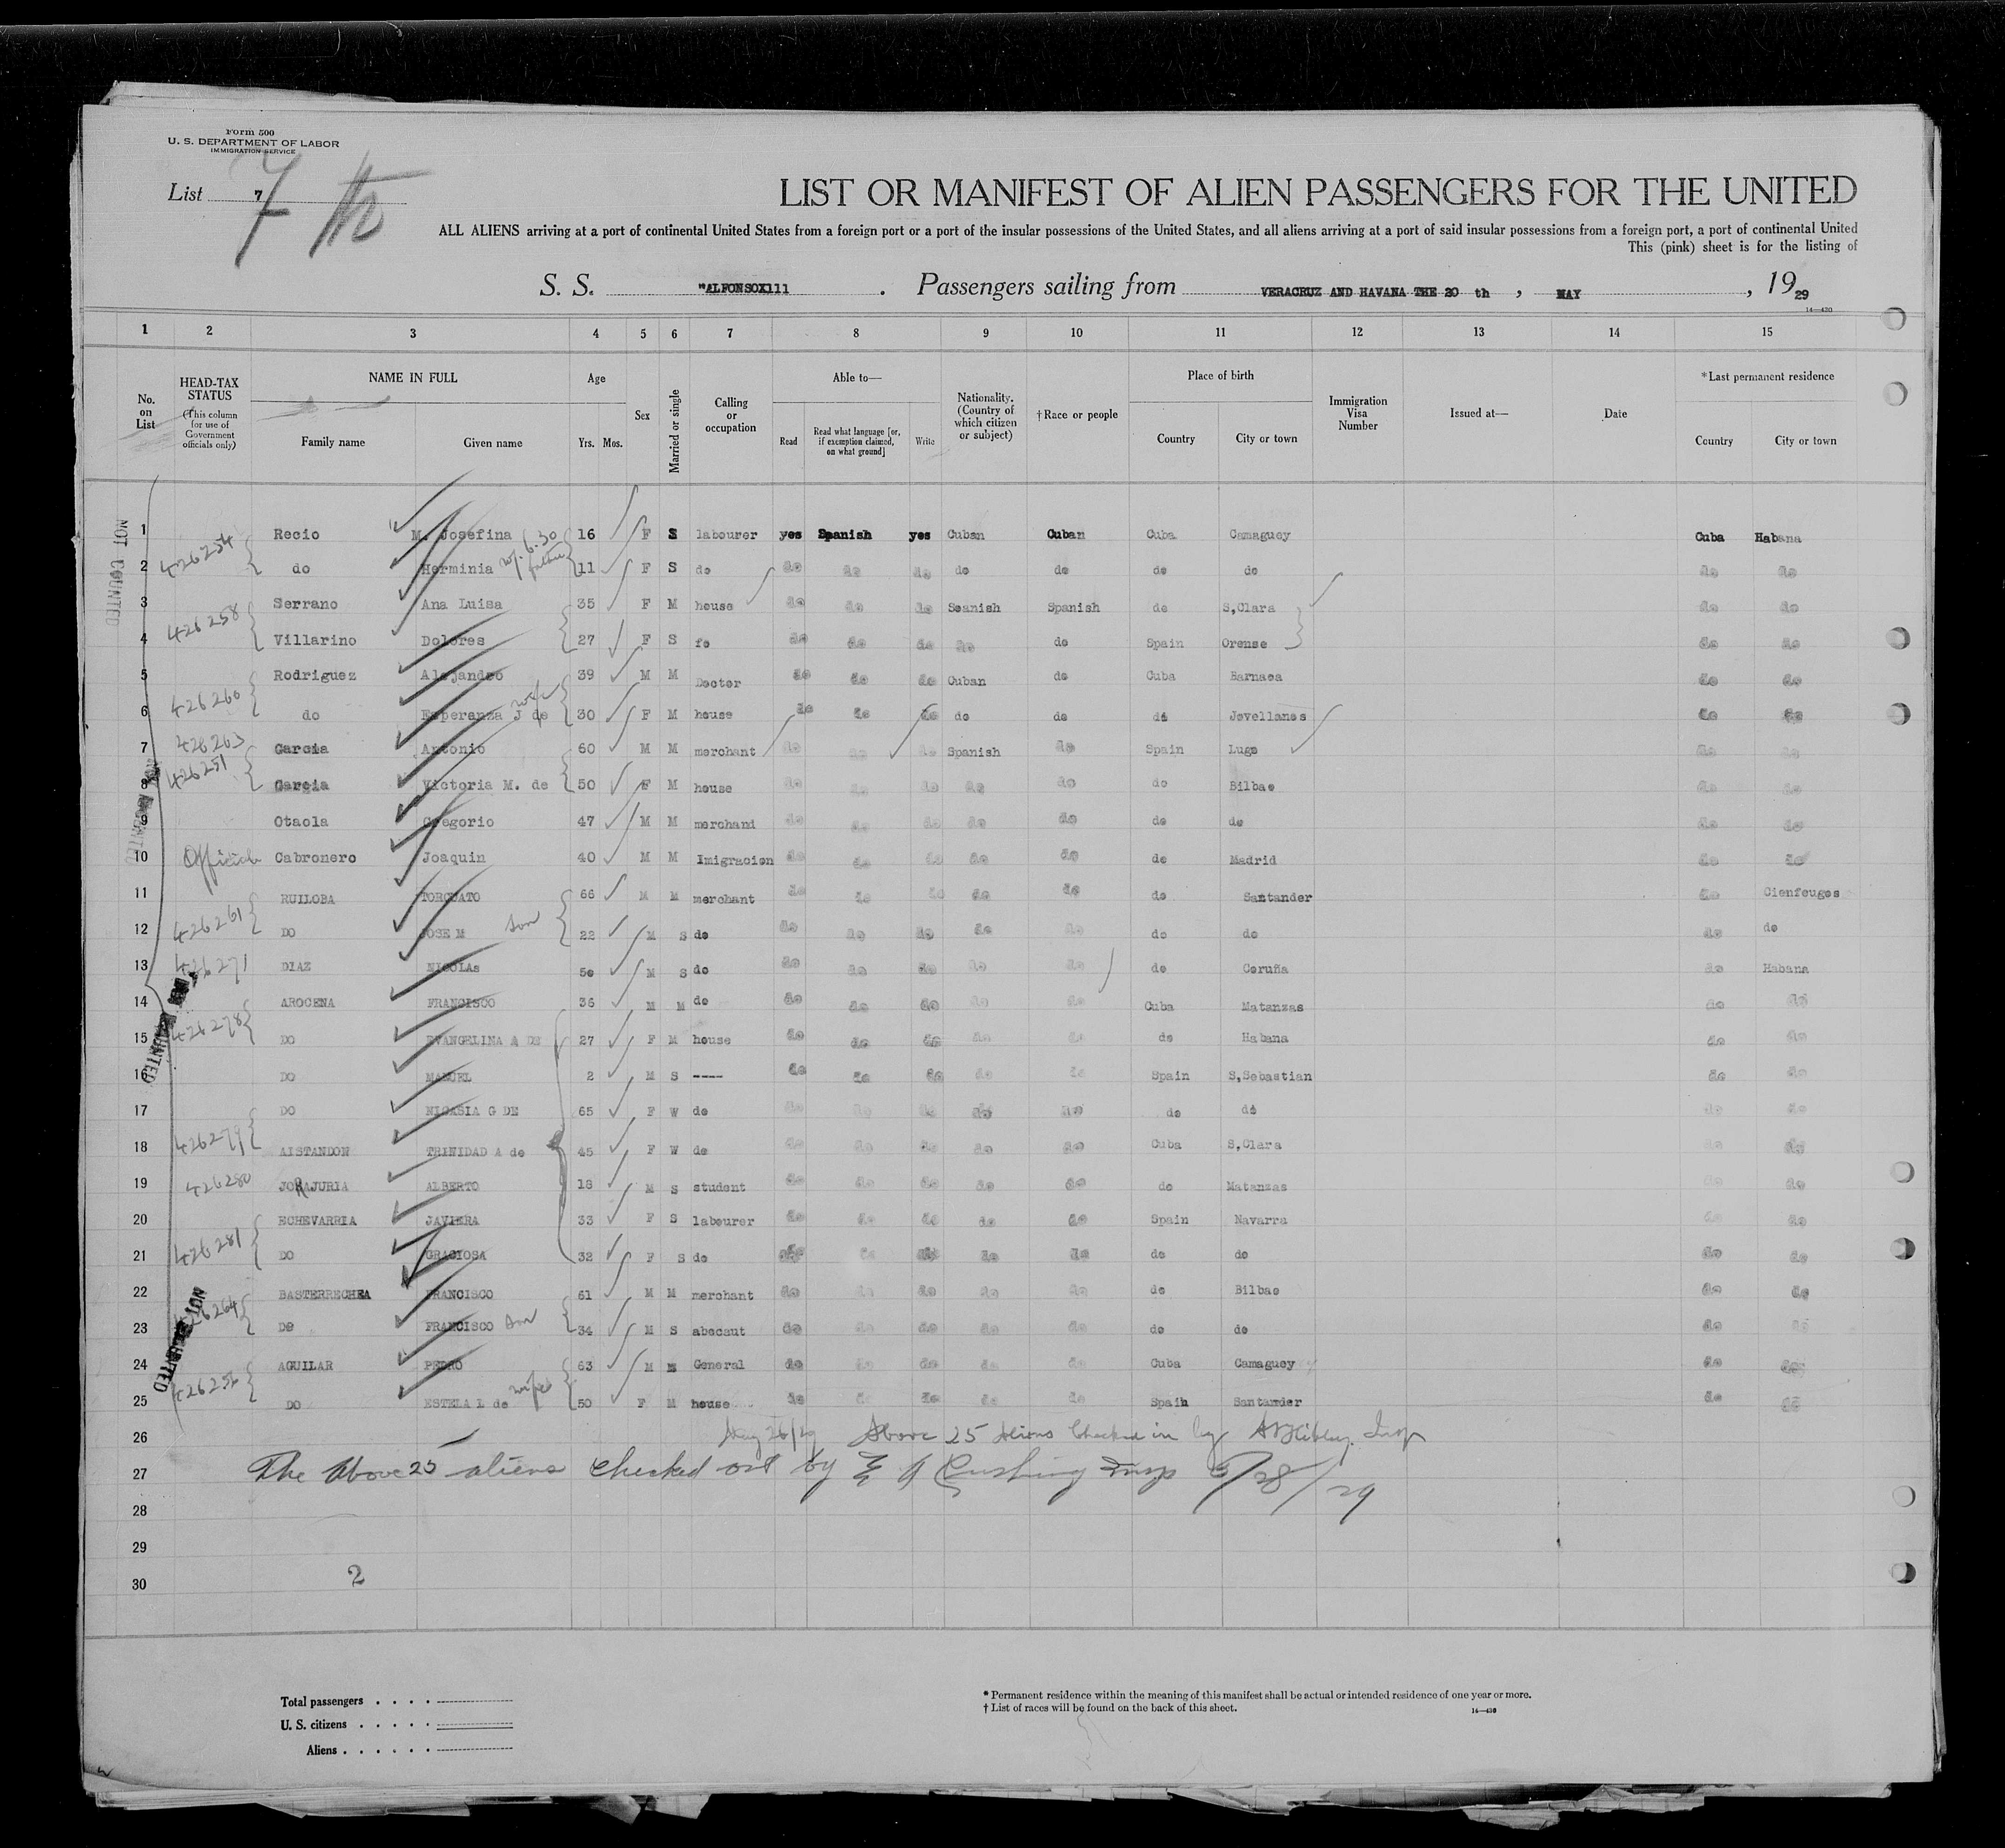 Form 500
U. S. DEPARTMENT OF LABOR
IMMIGRATION SERVICE
List 7
7 th
LIST OR MANIFEST OF ALIEN PASSENGERS FOR THE UNITED
ALL ALIENS arriving at a port of continental United States from a foreign port or a port of the insular possessions of the United States, and all aliens arriving at a port of said insular possessions from a foreign port, a port of continental United
This (pink) sheet is for the listing of
S. S. "ALFONSOX111 . Passengers sailing from VERACRUZ AND HAVANA THE 20 th , MAY , 19 29
14—430
1 2 3 4 5 6 7 8 9 10 11 12 13 14 15
No. on List
HEAD-TAX STATUS
(This column for use of Government officials only)
NAME IN FULL
Family name Given name
Age
Yrs. Mos.
Sex
Married or single
Calling or occupation
Able to—
Read
Read what language [or, if exemption claimed, on what ground]
Write
Nationality. (Country of which citizen or subject)
† Race or people
Place of birth
Country City or town
Immigration Visa Number
Issued at—
Date
*Last permanent residence
Country City or town
NOT COUNTED
1 426254 Recio M. Josefina 16 F S labourer yes Spanish yes Cuban Cuban Cuba Camaguey Cuba Habana
2 do Herminia 11 F S do do do do do do do do do do
3 426258 Serrano Ana Luisa 35 F M house do do do Spanish Spanish do S,Clara do do
4 Villarino Dolores 27 F S fo do do do do do Spain Orense do do
5 Rodriguez Alejandro 39 M M Doctor do do do Cuban do Cuba Barnaca do do
6 426260 do Esperanza J de wife 30 F M house do do do do do do Jovellanos do do
7 426263 Garcia Antonio 60 M M merchant do do do Spanish do Spain Lugo do do
8 426251 Garcia Victoria M. de 50 F M house do do do do do do Bilbao do do
9 Otaola Gregorio 47 M M merchand do do do do do do do do do
10 Official Cabronero Joaquin 40 M M Imigracion do do do do do do Madrid do do
11 RUILOBA TORCUATO 66 M M merchant do do do do do do Santander do Cienfuegos
12 426261 DO JOSE M son 22 M S do do do do do do do do do do
13 426271 DIAZ NICOLAs 50 M S do do do do do do do Coruña do Habana
14 AROCENA FRANCISCO 36 M M do do do do do do Cuba Matanzas do do
15 426278 DO EVANGELINA A DE 27 F M house do do do do do do Habana do do
16 DO MANUEL 2 M S ---- do do do do do Spain S,Sebastian do do
17 DO NICASIA G DE 65 F W do do do do do do do do do do
18 426279 AISTANDON TRINIDAD A de 45 F W do do do do do do Cuba S,Clara do do
19 426280 JORAJURIA ALBERTO 18 M S student do do do do do do Matanzas do do
20 ECHEVARRIA JAVIERA 33 F S labourer do do do do do Spain Navarra do do
21 426281 DO GRACIOSA 32 F S do do do do do do do do do do
22 BASTERRECHEA FRANCISCO 61 M M merchant do do do do do do Bilbao do do
23 426264 DO FRANCISCO son 34 M S abocaut do do do do do do do do do
24 AGUILAR PEDRO 63 M M General do do do do do Cuba Camaguey do do
25 DO ESTELA L de wife 50 F M house do do do do do Spain Santander do do
NOT COUNTED
26 May 26/29 Above 25 aliens checked in by Insp
27 The above 25 aliens checked out by E A Cushing Insp 5/28/29
28
29
30 2
Total passengers . . . .
U. S. citizens . . . . .
Aliens . . . . . .
* Permanent residence within the meaning of this manifest shall be actual or intended residence of one year or more.
† List of races will be found on the back of this sheet.
14—430